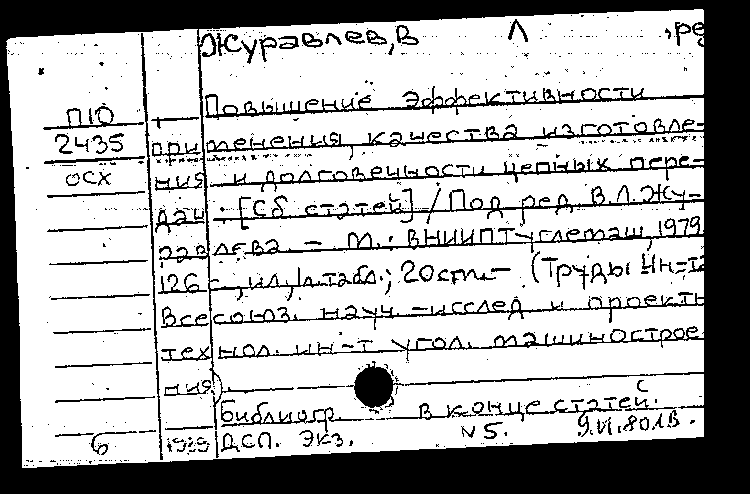 Журавлев, В Л , ре
П10 Повышение эффективности
2435 применения, качества изготовле-
осх ния и долговечности цепных пере-
дач : [Сб статей] / Под ред. В.Л.Жу-
равлева. – М.: ВНИИПТуглемаш, 1979
126 с., ил., 1 л.табл.; 20 см. – (Труды Ин-т
Всесоюз. науч. –исслед и проектн
технол. ин-т угол. машинострое
ния) .
Библиогр. в конце статей.
6 1979 ДСП. Экз. N 5. 9.VI.80 ЛВ.